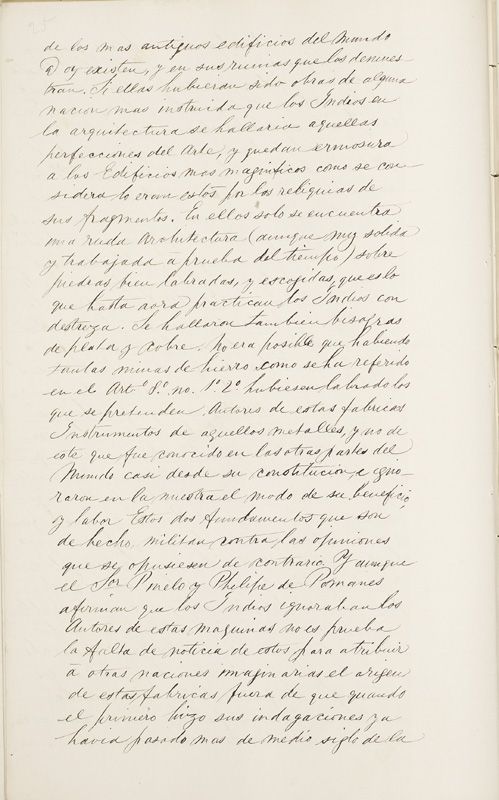 25
de los mas antiguos edificios del Mundo
q̃ oy existen, y en sus ruinas que los demues
tran. Si ellas hubieran sido obras de alguna
nacion mas instruida que los Indios en
la arquitectura se hallaria aquellas
perfecciones del Arte, y quedan ermosura
a los Edificios mas magnificos como se con
sidera lo eran estos por las reliquias de
sus fragmentos. En ellos solo se encuentra
una ruda Architectura (aunque muy solida
y trabajada a prueba del tiempo) sobre
piedras bien labradas, y escojidas, que es lo
que hasta aora practican los Indios con
destreza. Se hallaron tambien bisagras
de plata y cobre. no era posible que habiendo
tantas minas de hierro como se ha referido
en el Art.º 8.º no. 1º 2º hubiesen labrado los
que se pretenden Autores de estas fabricas
Instrumentos de aquellos metalles, y no de
este que fue conocido en las otras partes del
Mundo casi desde su constitucion e igno-
raron en la nuestra el modo de su beneficio
y labor Estos dos fundamentos que son
de hecho, militan contra las opiniones
que se opusiesen de contrario Y aunque
el Sor Pinelo y Philipe de Pomanes
afirman que los Indios ignoraban los
Autores de estas maquinas no es prueba
la falta de noticia de estos para atribuir
á otras naciones imaginarias el origen
de estas fabricas fuera de que quando
el primero hizo sus indagaciones ya
havia pasado mas de medio siglo de la